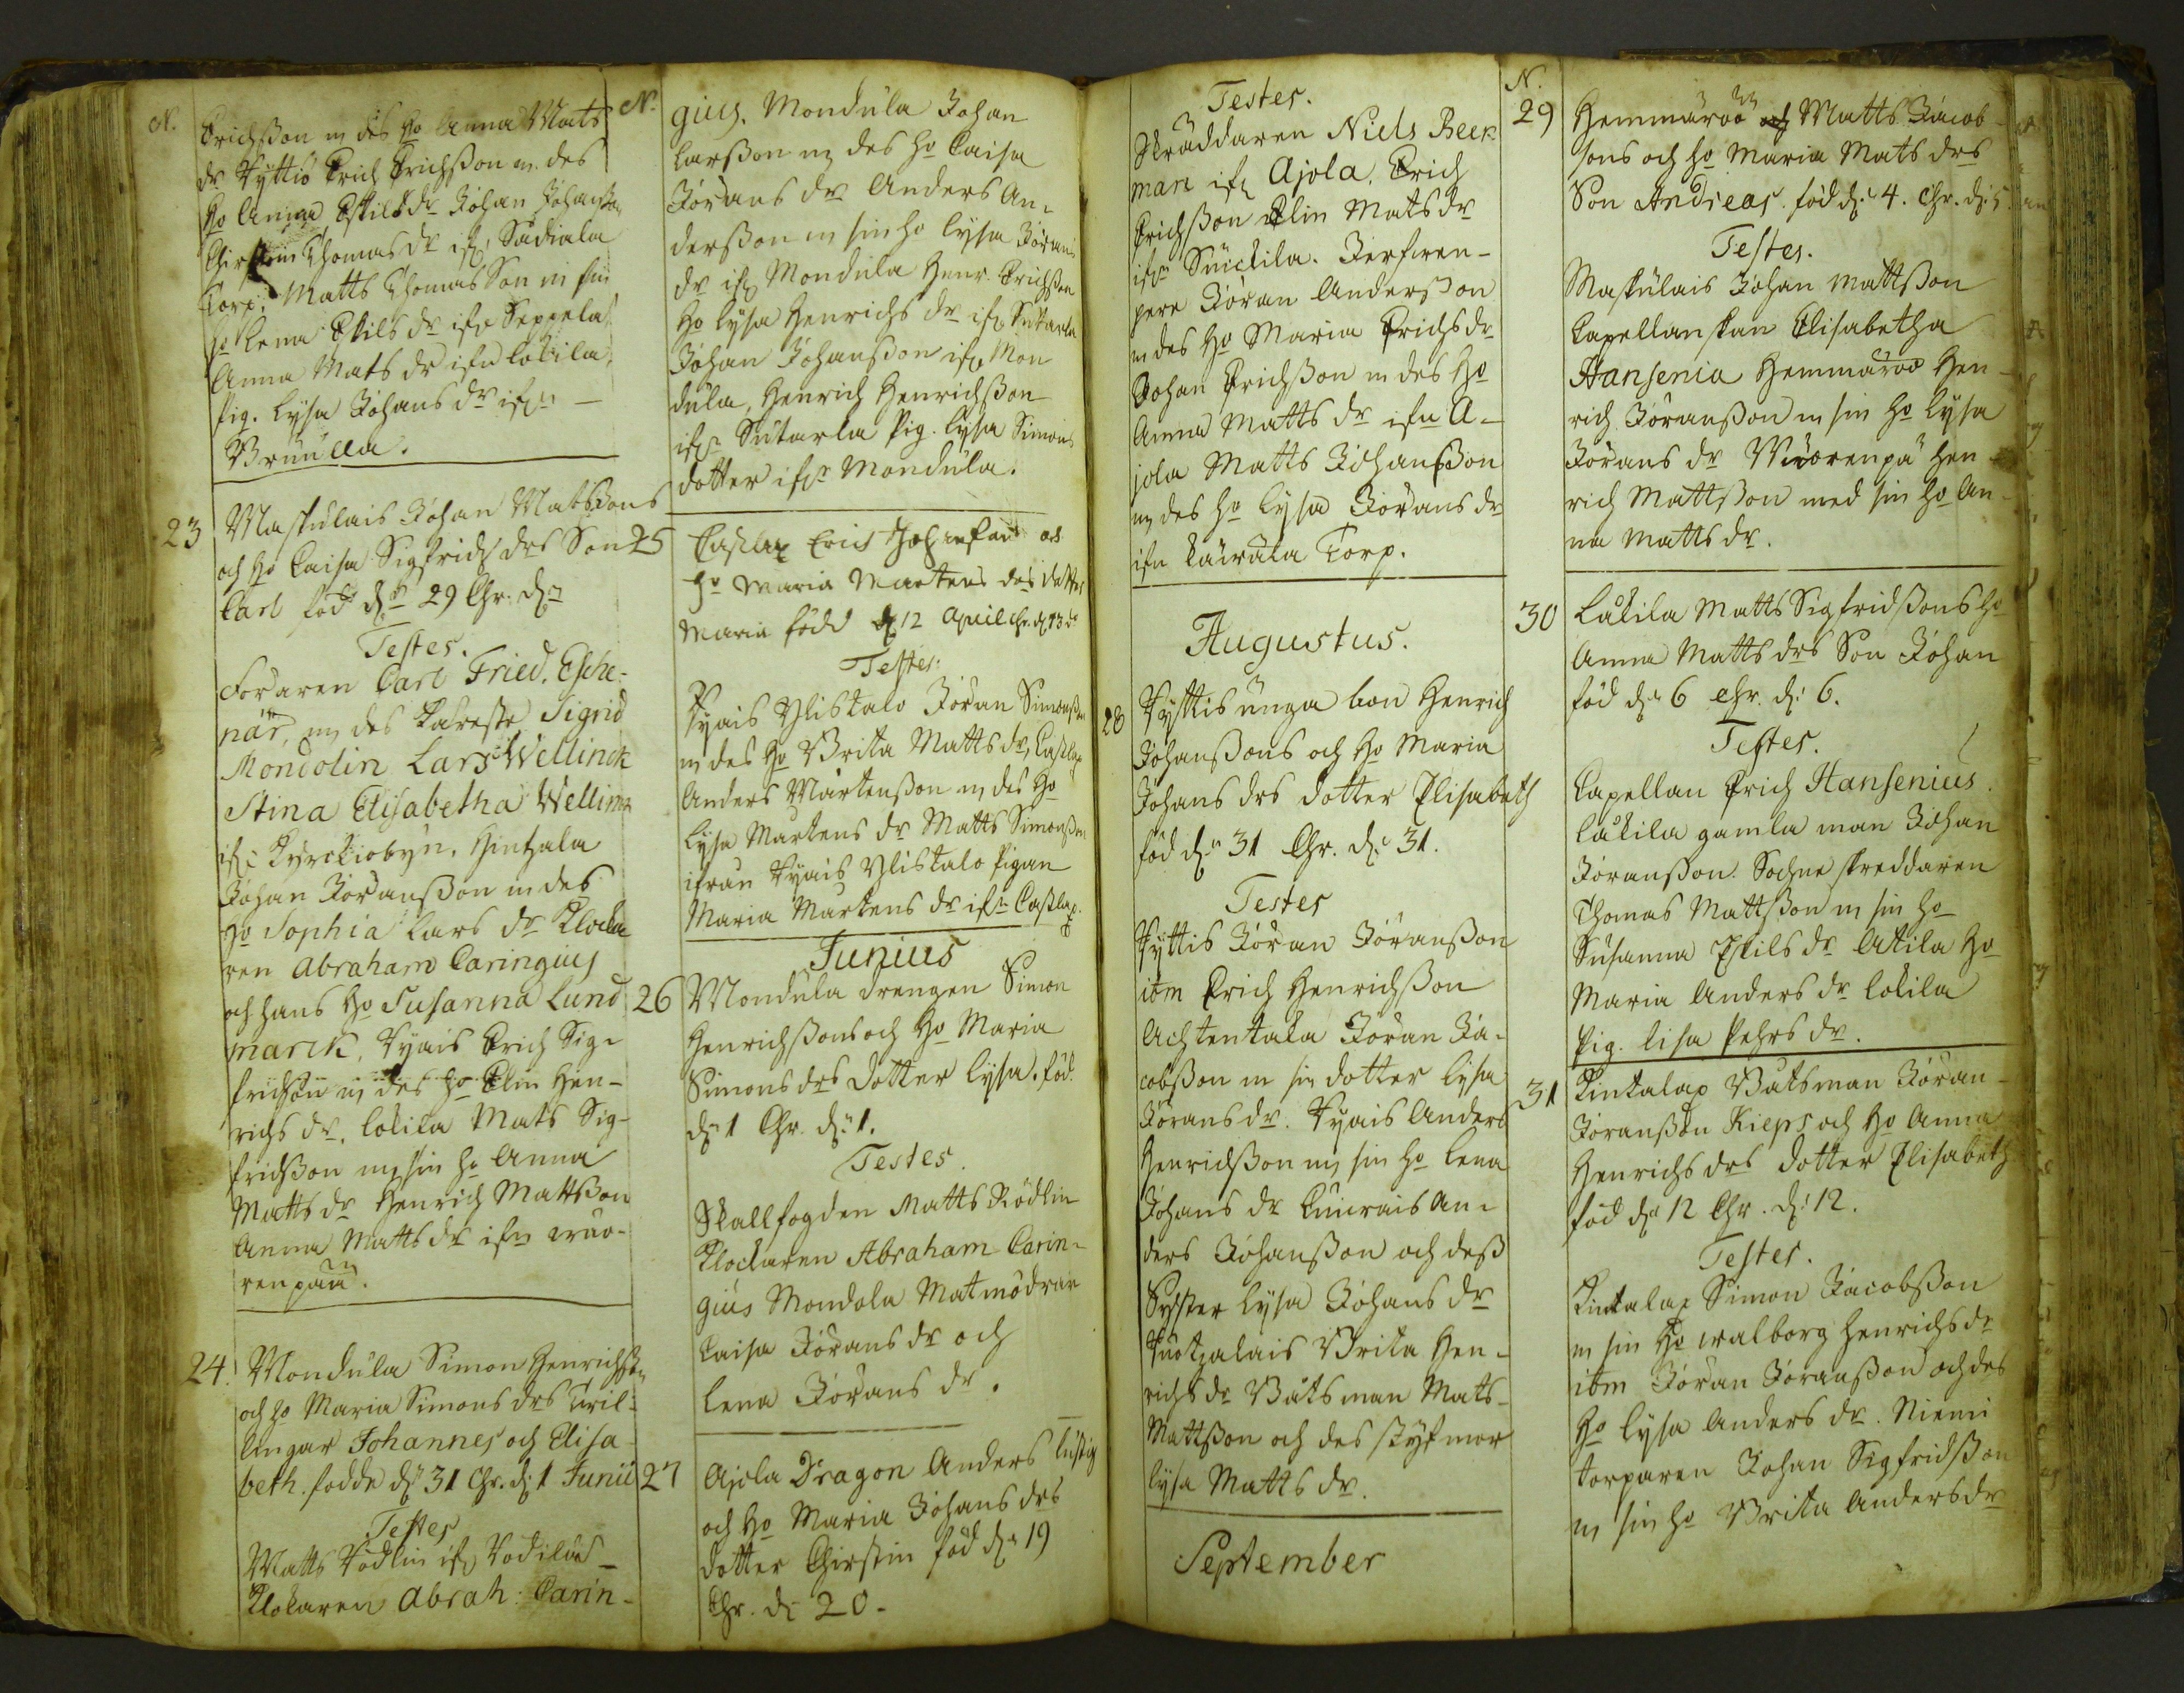 N.
Erichsson m des ho Anna Mats
dr Tyttis Erich Erichsson m. des
ho Anna Eskils dr Johan Johansson
Chirstin Thomas dr ifr. Sadiala
Torp. Matts Thomas Son m sin
ho Lena Eskils dr ifr Seppelä
Anna Mats dr ifrn Lokila,
Pig. Lysa Johans dr ifrn
23 Maskulais Johan Matssons
och ho Caisa Sigfrids drs Son
Carl född dn 29 Chr. dn
Testes.
Foraren Carl Fried. Esche-
när, m des Käreste Sigrid
Mondolin Lars Wellinck
Stina Elisabetha Wellinck
ifr Kyrckiobyn. Hintzala
Johan Joransson m des
ho Sophia Lars dr Klocka
ren Abraham Caringius
och hans ho Susanna Lund
marck, Tyais Erich Sig-
fridsson m des ho Elin Hen-
richs dr. Lokila Mats Sig-
fridsson m sin ho Anna
Matts dr Henrich Mattsson
Anna Matts dr ifrn wuo-
renpää.
24. Mondula Simon Henrichsson
och ho Maria Simons drs Tvil-
lingar Johannes och Elisa
beth. födde dn 31 Chr. d. 1 Junii
Testes
Matts Rödlin ifr
Klokaren Abrah. Carin-
N.
gius. Mondula Johan
Larsson m des ho Caisa
Jörans dr Anders An-
dersson m sin ho Lysa Jörans
dr ifr Mondula Henr. Erichsson
ho Lysa Henrichs dr ifr Sutarla
Johan Johansson ifr Mon
dula, Henrich Henrichsson
ifr Sutarla Pig. Lysa Simons
dotter ifrn Mondula.
25 Caslax Erics Johansson och
ho Maria Martens drs dotter
Maria född d 12 April Chr. d 13 do
Testes.
Tyais Ylistalo Jöran Simonsson
m des ho Brita Matts dr, Caslax
Anders Mårtensson m des ho
Lysa Martens dr Matts Simonsson
ifrån Tyais Ylistalo Pigan
Maria Martens dr ifrn Caslax.
Junius
26 Mondula drengen Simon
Henrichssons och ho Maria
Simons drs dotter Lysa. föd.
dn 1 Chr. dn 1.
Testes.
Skallfogden Matts Rödlin
Klockaren Abraham Carin-
gius Mondola Matmodran
Caisa Jörans dr och
Lena Jörans dr.
27 Ajola Dragon Anders Lustig
och ho Maria Johans drs
dotter Chirstin föd dn 19
Chr. d. 20.
Testes.
Skräddaren Niels Beck
man ifr Ajola. Erich
Erichsson Elin Mats dr
ifrn Suickila.
Jöran Andersson
m des ho Maria Erichs dr
Johan Erichsson m des ho
Anna Matts dr ifrn A-
jola Matts Johansson
m des ho Lysa Jörans dr
ifrn Torp.
Augustus.
28 Tyttis unga bon Henrich
Johanssons och ho Maria
Johans drs dotter Elisabeth
föd dn 31 Chr. d. 31.
Testes
Tyttis Jöran Joransson
itm Erich Henrichsson
Achtentaka Jöran Ja-
cobsson m sin dotter Lysa
Jörans dr. Tyais Anders
Henrichsson m sin ho Lena
Johans dr An-
ders Johansson och dess
Syster Lysa Johans dr
Brita Hen-
richs dr Båtsman Mats
Mattsson och des styfmor
Lysa Matts dr.
September
N.
29 Hemmäröö Matts Jacob
sons och ho Maria Mats drs
Son Andreas. föd d. 4. Chr. d. 5.
Testes.
Maskulais Johan Mattsson
Capellanskan Elisabetha
Hansenia Hemmäröö Hen-
rich Joransson m sin ho Lysa
Jörans dr Wuorenpä Hen-
rich Mattsson med sin ho An-
na Matts dr.
30 Låkila Matts Sigfridssons ho
Anna Matts drs Son Johan
föd dn 6 Chr. d. 6.
Testes.
Capellan Erich Hansenius.
Låkila gamla man Johan
Joransson Sochne skreddaren
Thomas Mattsson m sin ho
Susanna Eskils dr Atila ho
Maria Anders dr Lokila
Pig. Lisa Pehrs dr.
31 Kintalax Båtsman Jöran
Joransson Kieps och ho Anna
Henrichs drs dotter Elisabeth
föd dn 12 Chr. d. 12.
Testes.
Kintalax Simon Jacobsson
m sin ho walborg Henrichs dr
itm Jöran Joransson och des
ho Lysa Anders dr. Niemi
torparen Johan Sigfridsson
m sin ho Brita Anders dr